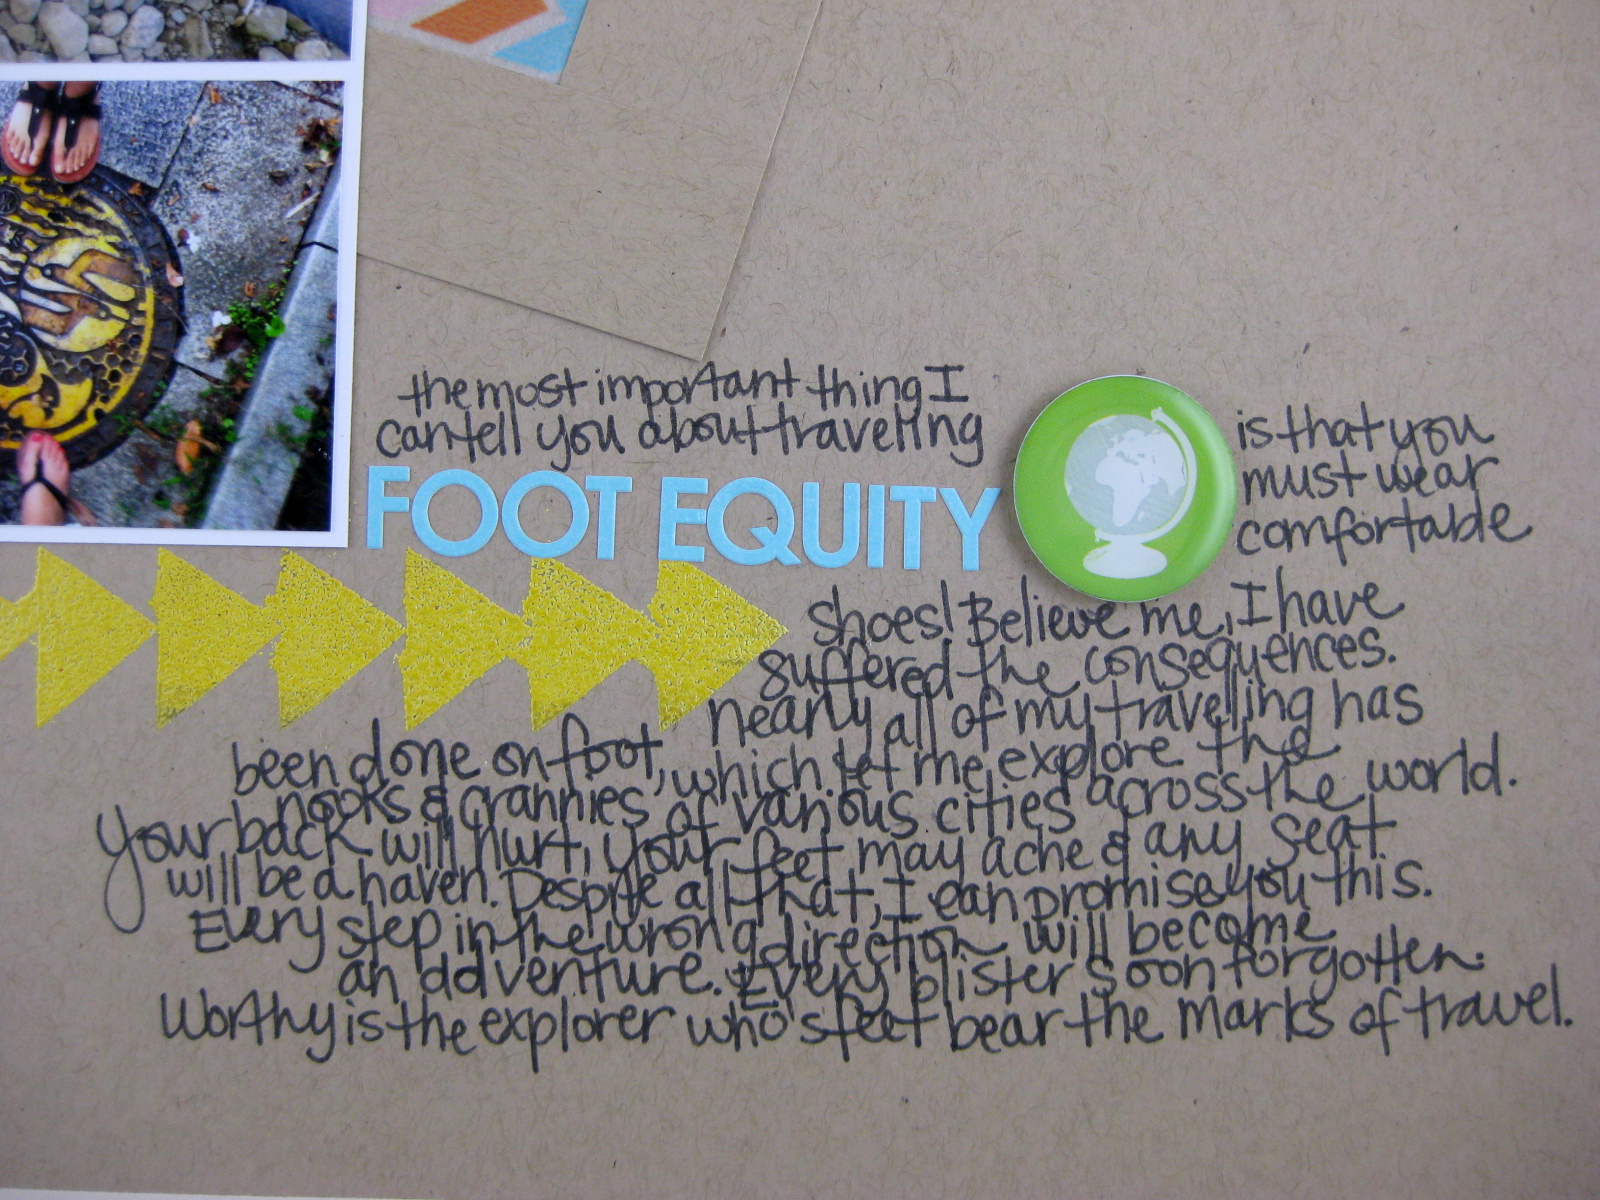 the most important thing I
can tell you about traveling
FOOT EQUITY
is that you
must wear
comfortable
shoes! Believe me, I have
suffered the consequences.
nearly all of my traveling has
been done on foot, which let me explore the
nooks & crannies of various cities across the world.
Your back will hurt, your feet may ache & any seat
will be a haven. Despite all that, I can promise you this.
Every step in the wrong direction will become
an adventure. Every blister soon forgotten.
Worthy is the explorer who's feet bear the marks of travel.